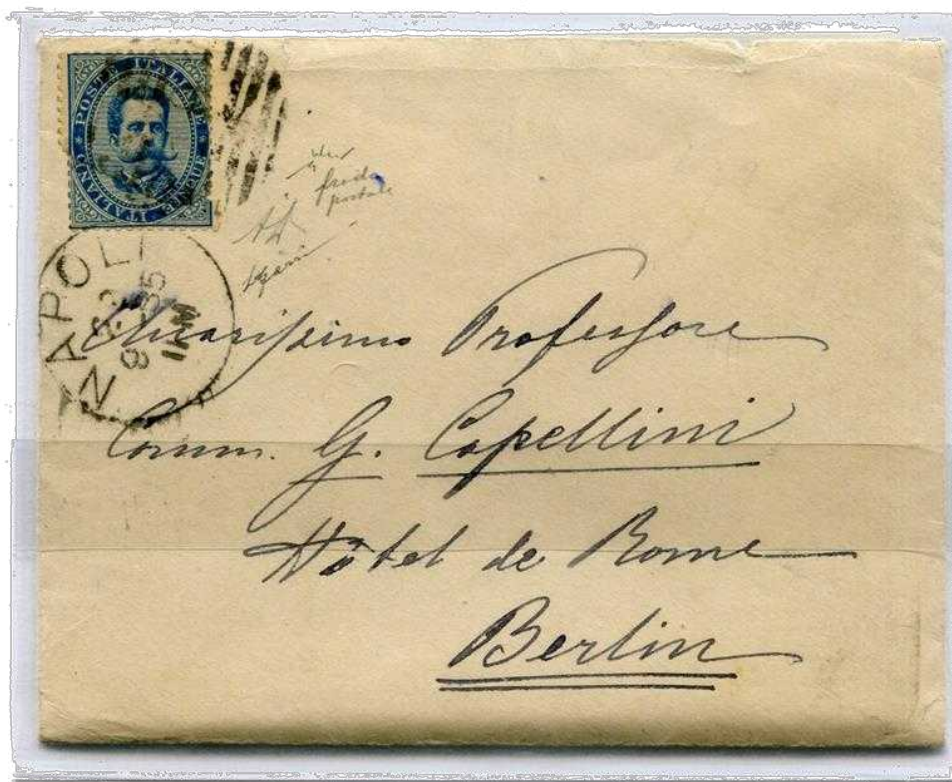 POSTE ITALIANE
CINQUE
NAPOLI
Chiarissimo Professore
Comm. G. Capellini
Hôtel de Rome
Berlin